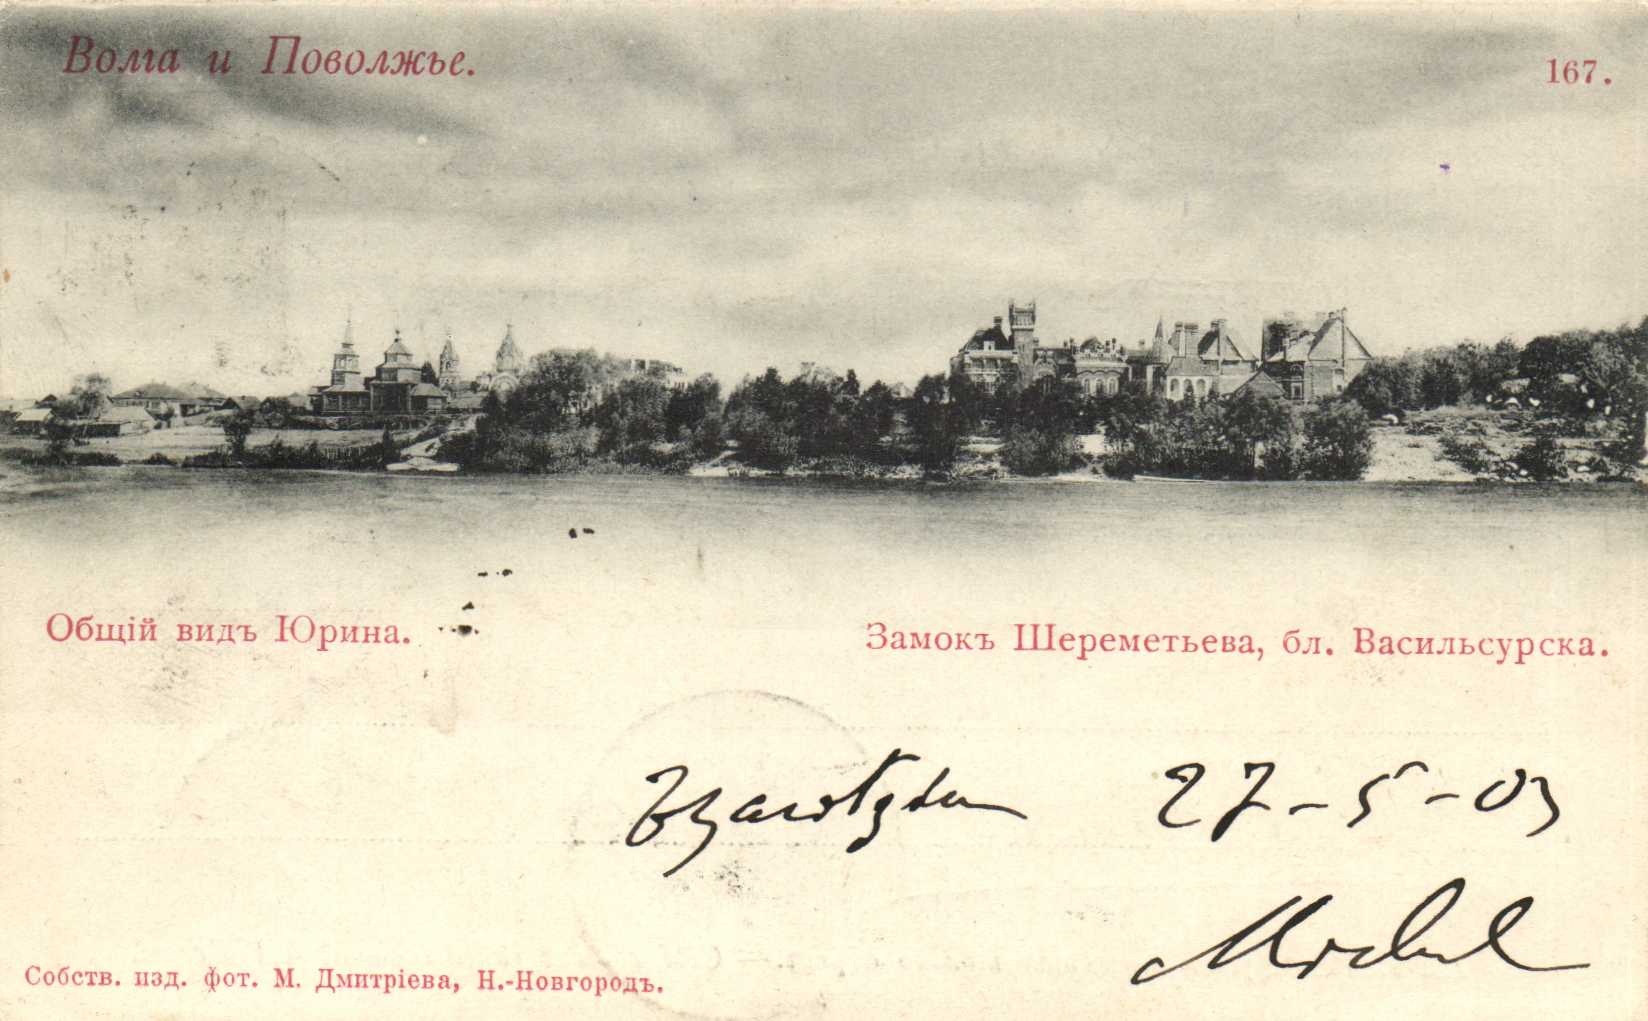 Волга и Поволжье.
167.
Общій видъ Юрина.
Замокъ Шереметьева, бл. Васильсурска.
27-5-03
Собств. изд. фот. М. Дмитріева, Н.-Новгородъ.